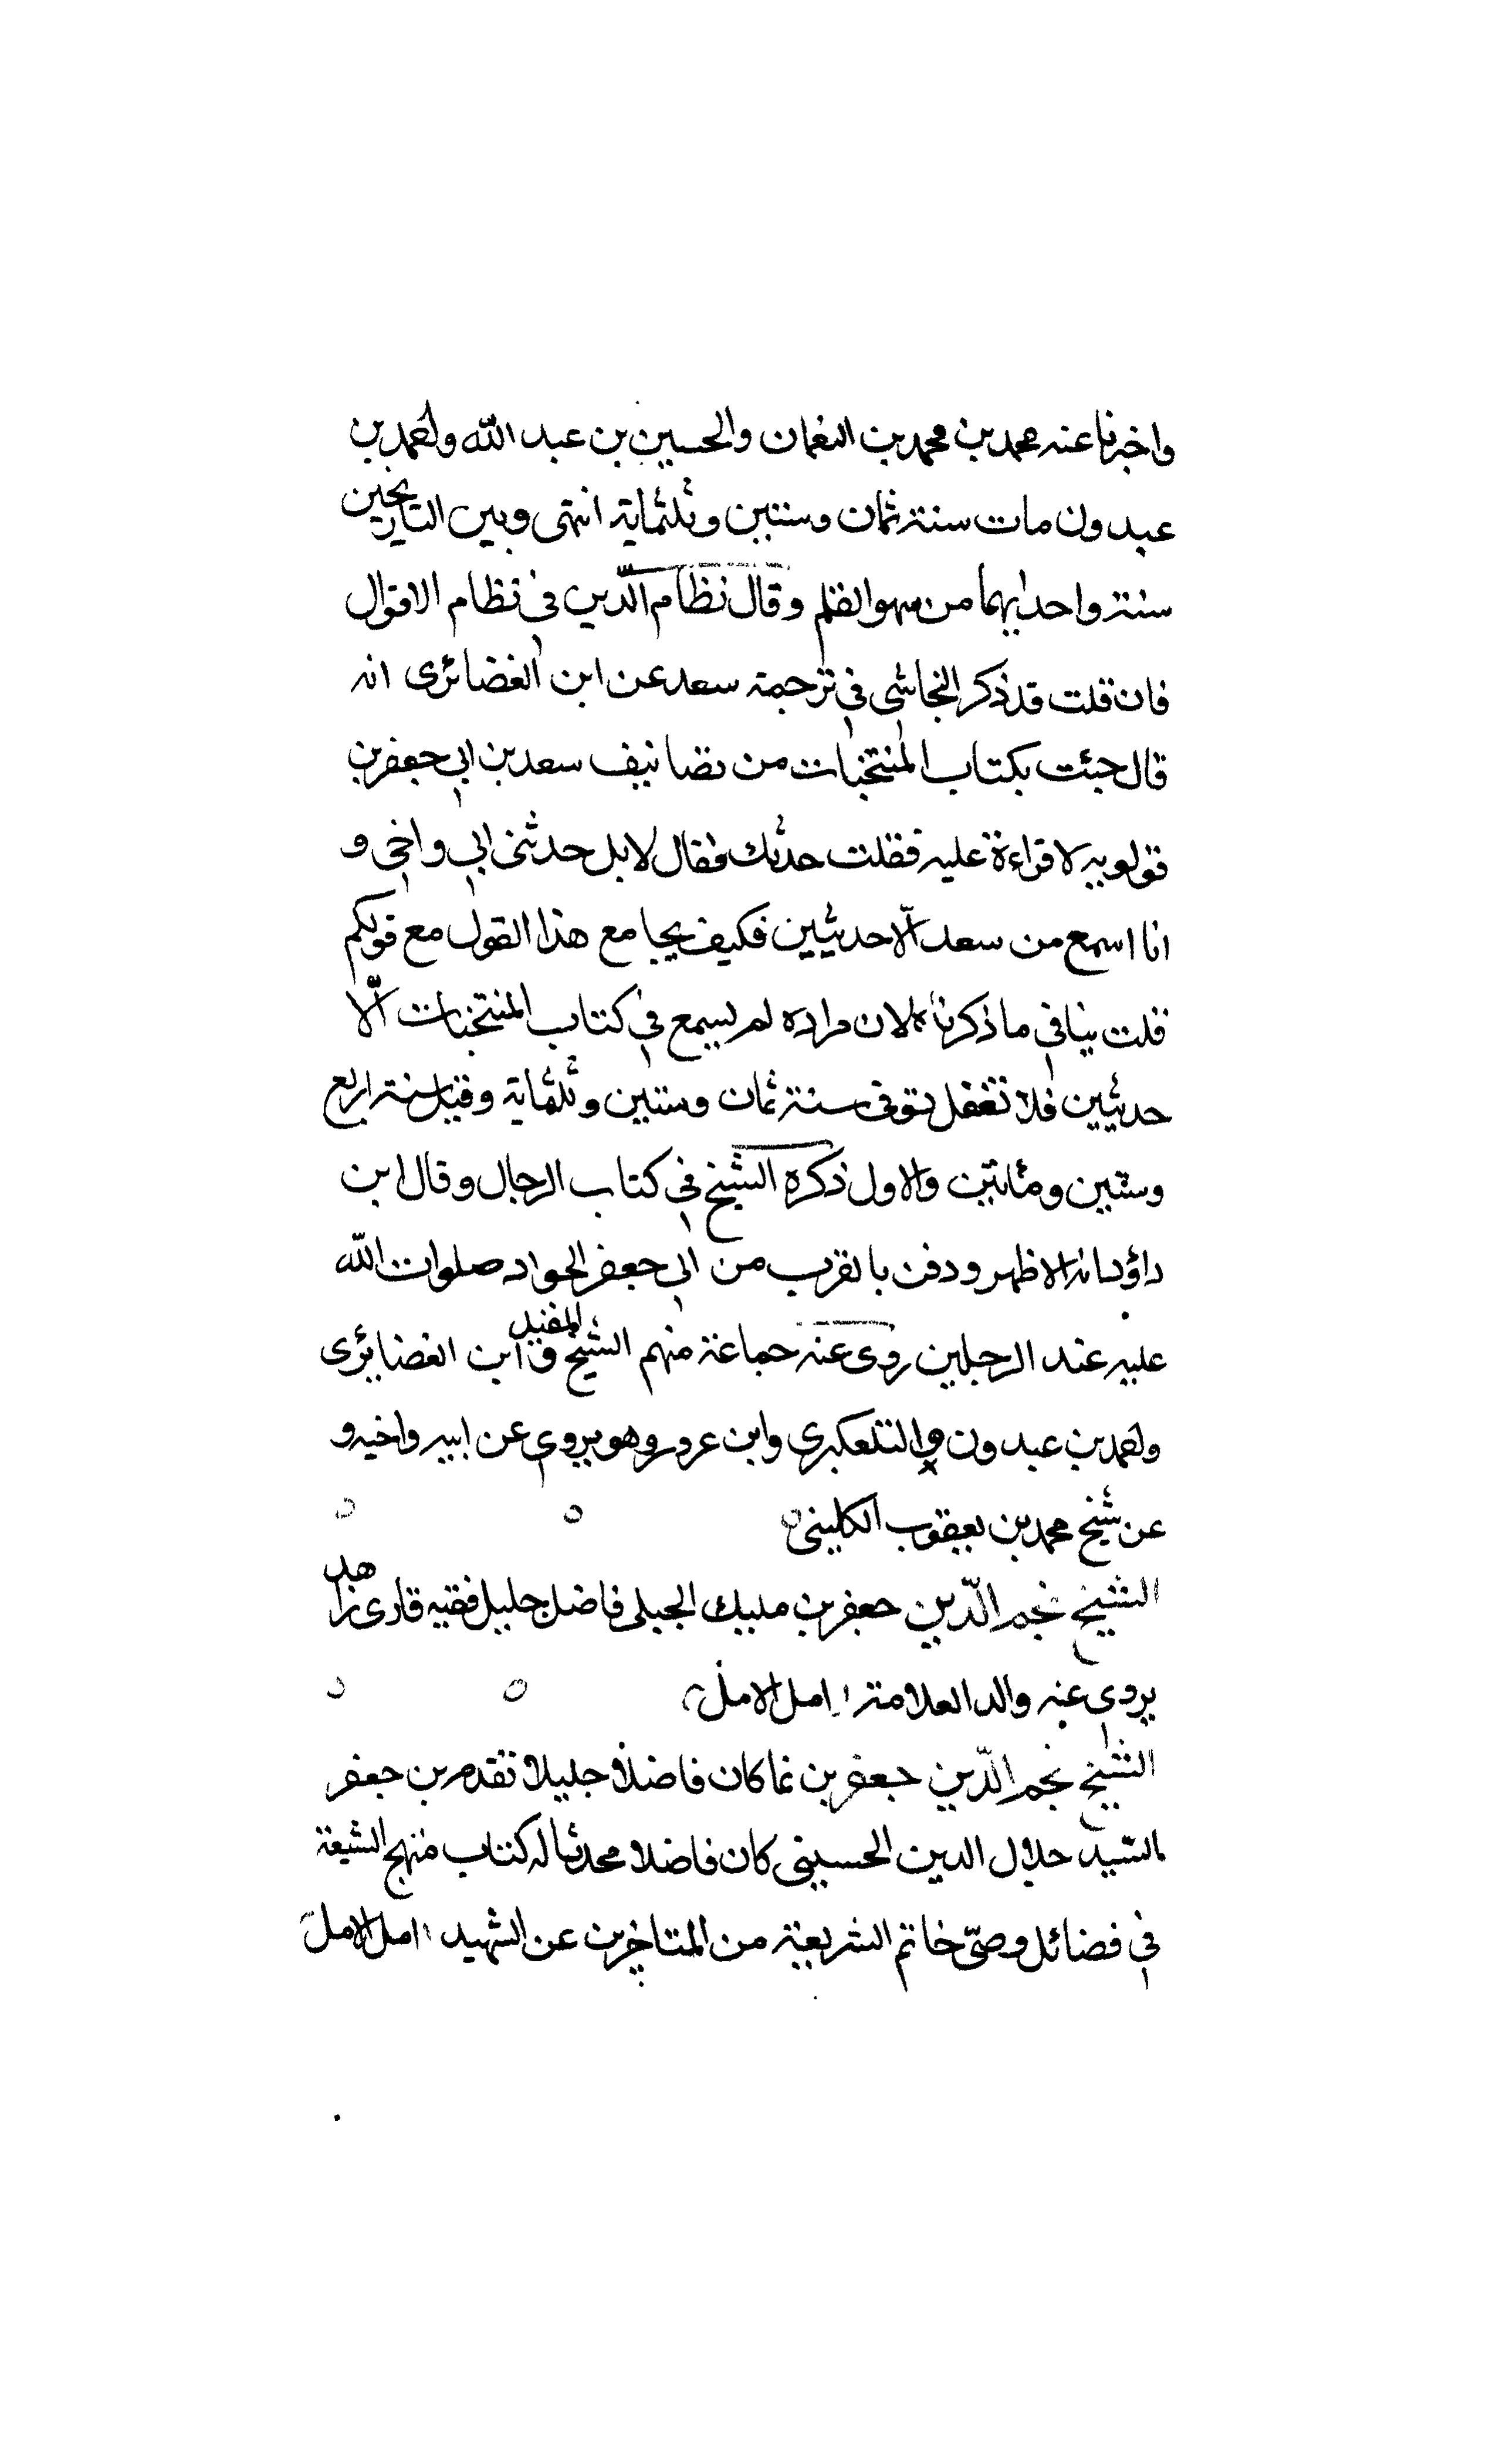 واخبرنا عنه محمد بن محمد بن النعمان والحسين بن عبد الله واحمد بن
عبدون مات سنة ثمان وستين وثلثماية انتهى وبين التاريخين
سنة واحدايهما من سهو القلم وقال نظام الدّين في نظام الاقوال
فان قلت قد ذكر النجاشي في ترجمة سعد عن ابن الغضائرى انه
قال جئت بكتاب المنتخبات من تصانيف سعد بن ابي جعفر بن
قولويه لاقراءة عليه فقلت حدثك فقال لا بل حدثنى ابي واخي و
انا اسمع من سعد الّا حديثين فكيف يجامع هذا القول مع قولكم
قلت ينافي ما ذكرناه لان مراده لم يسمع في كتاب المنتخبات الّا
حديثين فلا تغفل توفى سنة ثمان وستين وثلثماية وقيل سنة اربع
وستين ومائتين والاول ذكره الشيخ في كتاب الرجال وقال ابن
داؤد انه الاظهر ودفن بالقرب من ابي جعفر الجواد صلوات الله
عليه عند الرجلين روى عنه جماعة منهم الشيخ المفيد وابن الغضايرى
واحمد بن عبدون والتلعكبرى وابن عرور وهو يروى عن ابيه واخيه و
عن شيخ محمد بن يعقوب الكلينى
الشيخ نجم الدّين جعفر بن مليك الجبلى فاضل جليل فقيه قارى زاهد
يروى عنه والد العلامة امل الامل
الشيخ نجم الدّين جعفر بن نما كان فاضلا جليلا تقدم بن جعفر
السّيد جلال الدين الحسينى كان فاضلا محدثا له كتاب منهج الشيعة
في فضائل وصىّ خاتم الشريعة من المتاخرين عن الشهيد امل الامل